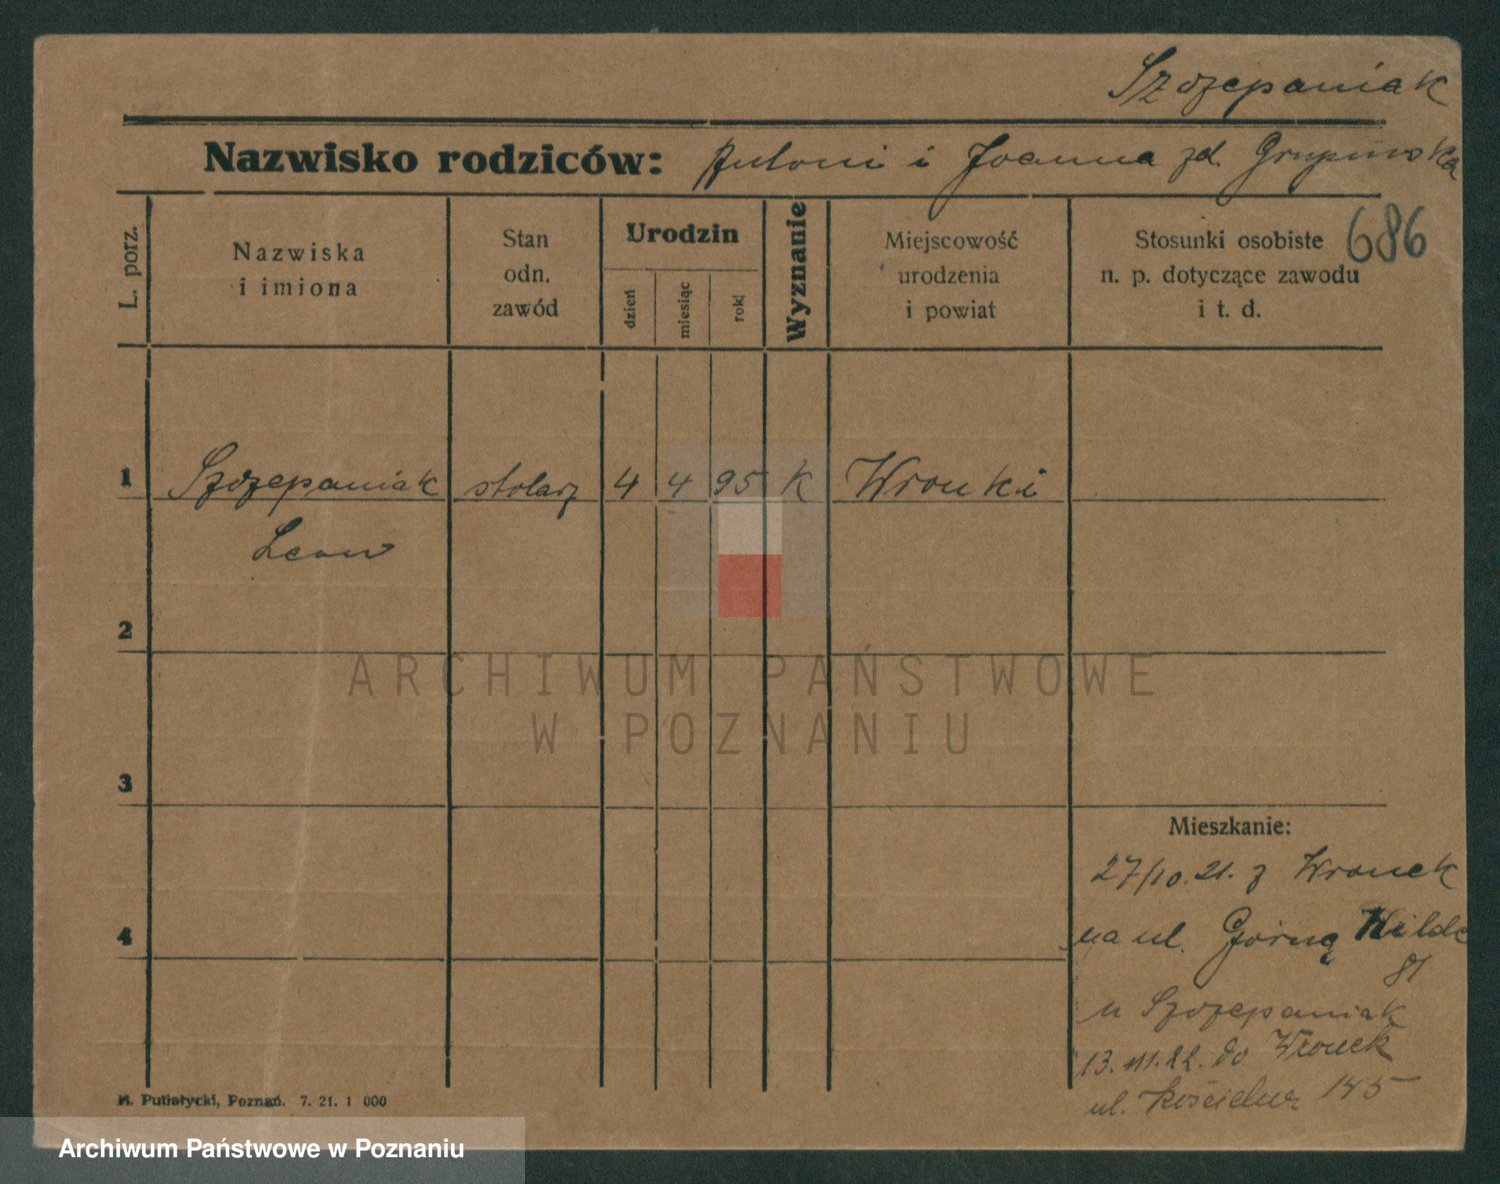 Szczepaniak
Nazwisko rodziców: Antoni i Joanna zd. Grupińska
686
L. porz.
Nazwiska
i imiona
Stan
odn.
zawód
Urodzin
dzień
miesiąc
rok
Wyznanie
Miejscowość
urodzenia
i powiat
Stosunki osobiste
n. p. dotyczące zawodu
i t. d.
1 Szczepaniak stolarz 4 4 95 K Wronki
Leon
2
3
4
Mieszkanie:
27/10.21. z Wronek
na ul. Górną Wildę
81
u Szczepaniak
13. 11. 22. do Wronek
ul. Kościelna 145
M. Putiatycki, Poznań. 7. 21. 1 000
ARCHIWUM PAŃSTWOWE
W POZNANIU
Archiwum Państwowe w Poznaniu